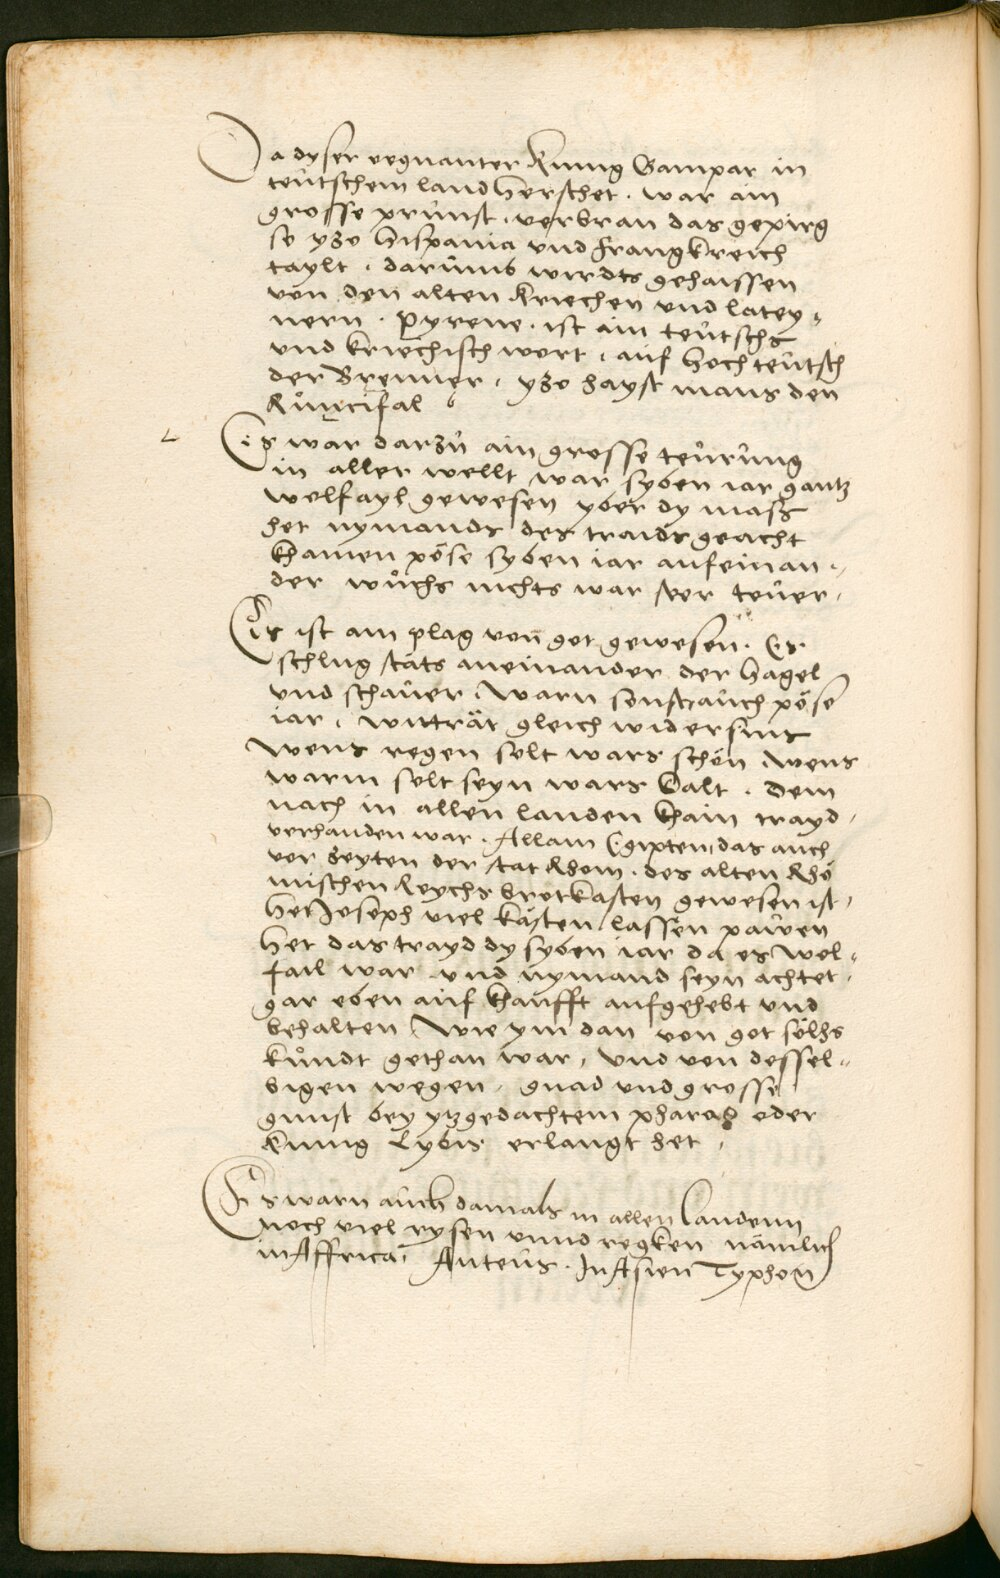 Da dyser regnanter Kunig Gampar in
teutschem land herschet . war ain
grosse prunst . verbran das gepirg
so yzo hispania vnd frangkreich
taylt . darumb wirdts gehaissen
von den alten Kriechen vnd latey„
nern . Pyrene . ist ain teutschs
vnd kriechisch wort . auf hochteutsch
der Brenner . yzo hayst mans den
Runcifal
Es war darzu ain grosse teurung
in aller wellt war syben iar gantz
wolfayl gewesen yber dy mass
het nymands des traids geacht
khamen pöse syben iar aufeinan„
der wuchs nichts war seer teuer .
Es ist ain plag von got gewesen . Es
schlug stäts aneinander der hagel
vnd schauer . warn sonst auch pöse
iar . witträt gleich widersins
wens regen solt wars schön . wens
warm solt seyn wars kalt . dem
nach in allen landen khain trayd
verhanden war . Allain Egipten, das auch
vor Zeyten der stat Rhom . des alten Rhö
mischen Reychs brotkasten gewesen ist .
het Joseph viel kästen lassen pawen
het das trayd dy syben iar da es wol„
fail war vnd nymand seyn achtet .
gar eben auf khaufft aufgehebt vnd
behalten wie ym dan von got sölhs
kundt gethan war . vnd von dessel„
bigen wegen . gnad vnd grosse
gunst bey ytzgedachtem pharao oder
Kunig Lybis erlangt het .
Es warn auch damals in allen Landenn
noch viel rysen vnnd regken nämlich
in Affrica . Anteus . In Asien Typhon